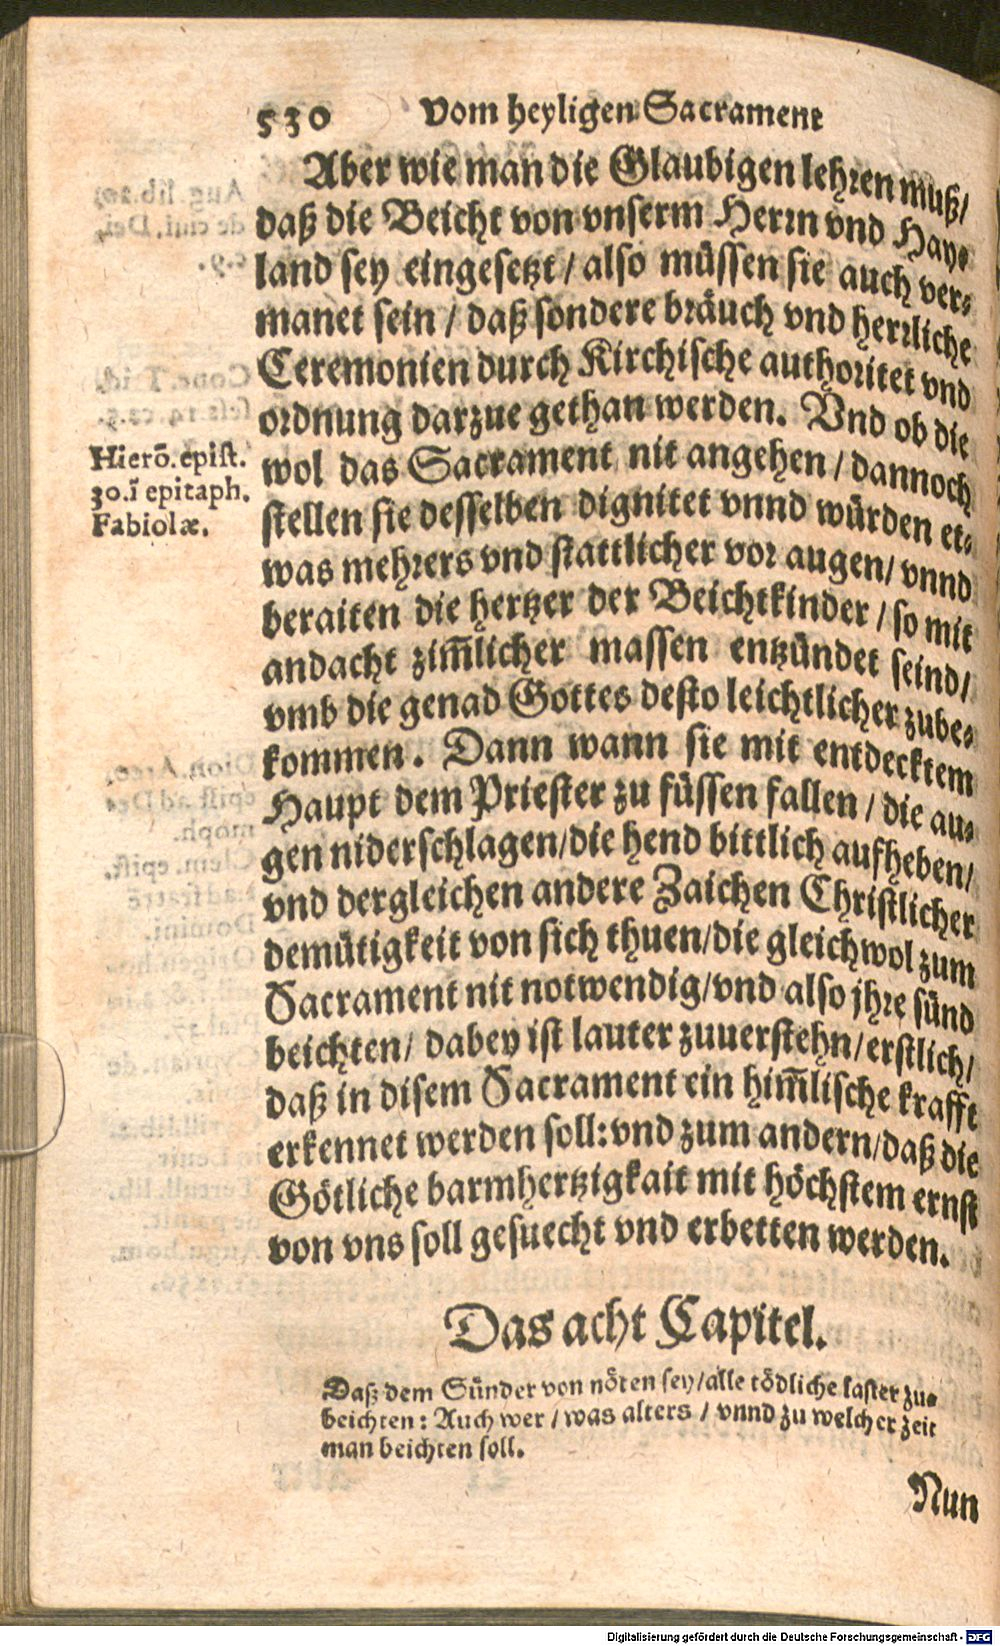 530 Vom heyligen Sacrament
Aber wie man die Glaubigen lehren muß/
daß die Beicht von vnserm Herrn vnd Hay-
land sey eingesetzt / also müssen sie auch ver-
manet sein / daß sondere bräuch vnd herrliche
Ceremonien durch Kirchische authoritet vnd
ordnung darzue gethan werden. Vnd ob die
wol das Sacrament nit angehen / dannoch
stellen sie desselben dignitet vnnd würden et-
was mehrers vnd stattlicher vor augen / vnnd
beraiten die hertzer der Beichtkinder / so mit
andacht zim̃licher massen entzündet seind /
vmb die genad Gottes desto leichtlicher zube-
kommen. Dann wann sie mit entdecktem
Haupt dem Priester zu füssen fallen / die au-
gen niderschlagen / die hend bittlich aufheben /
vnd dergleichen andere Zaichen Christlicher
demütigkeit von sich thuen / die gleichwol zum
Sacrament nit notwendig / vnd also jhre sünd
beichten / dabey ist lauter zuuerstehn / erstlich /
daß in disem Sacrament ein him̃lische krafft
erkennet werden soll: vnd zum andern / daß die
Götliche barmhertzigkait mit höchstem ernst
von vns soll gesuecht vnd erbetten werden.
Hierō. epist.
30. ī epitaph.
Fabiolæ.
Das acht Capitel.
Daß dem Sünder von nöten sey / alle tödliche laster zu-
beichten: Auch wer / was alters / vnnd zu welcher zeit
man beichten soll.
Nun
Digitalisierung gefördert durch die Deutsche Forschungsgemeinschaft - DFG